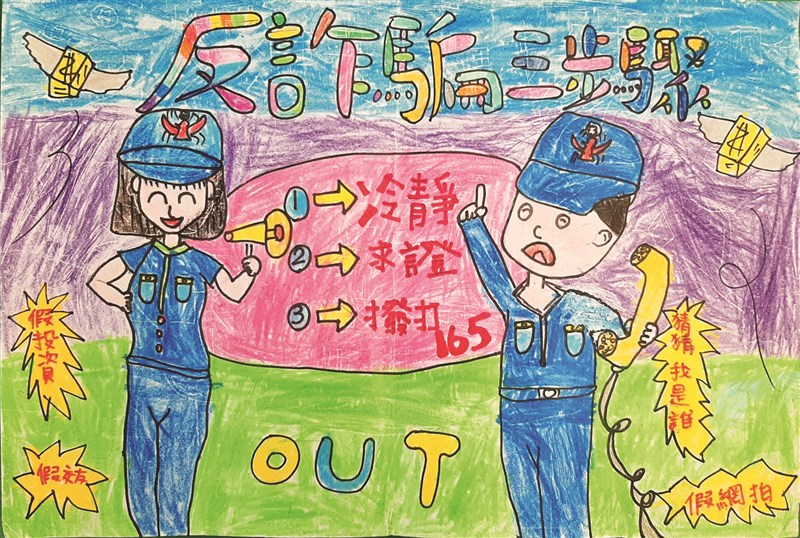 反詐騙三步驟
1 冷靜
2 求證
3 撥打165
假投資
假交友
猜猜我是誰
假網拍
OUT